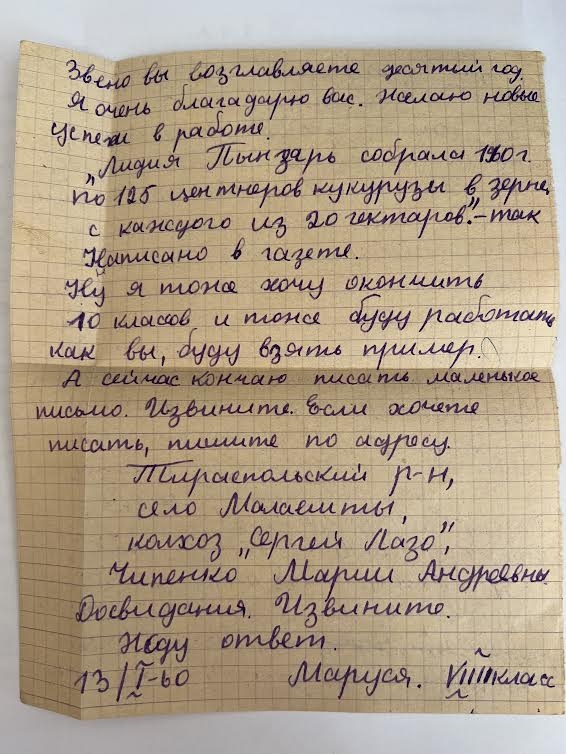 Звено вы возглавляете десятый год.
Я очень благадарю вас. Желаю новые
успехи в работе.
„Лидия Пынзарь собрала 1960г.
по 125 центнеров кукурузы в зерне,
с каждого из 20 гектаров."-так
написано в газете.
Ну я тоже хочу окончить
10 классов и тоже буду работать
как вы, буду взять пример.
А сейчас кончаю писать маленькое
письмо. Извините. Если хочете
писать, пишите по адресу.
Тираспольский р-н,
село Малаешты,
колхоз „Сергей Лазо",
Чипенко Марии Андреевны
Досвидания. Извините.
Жду ответ.
13/I-60 Маруся. VIIII класс